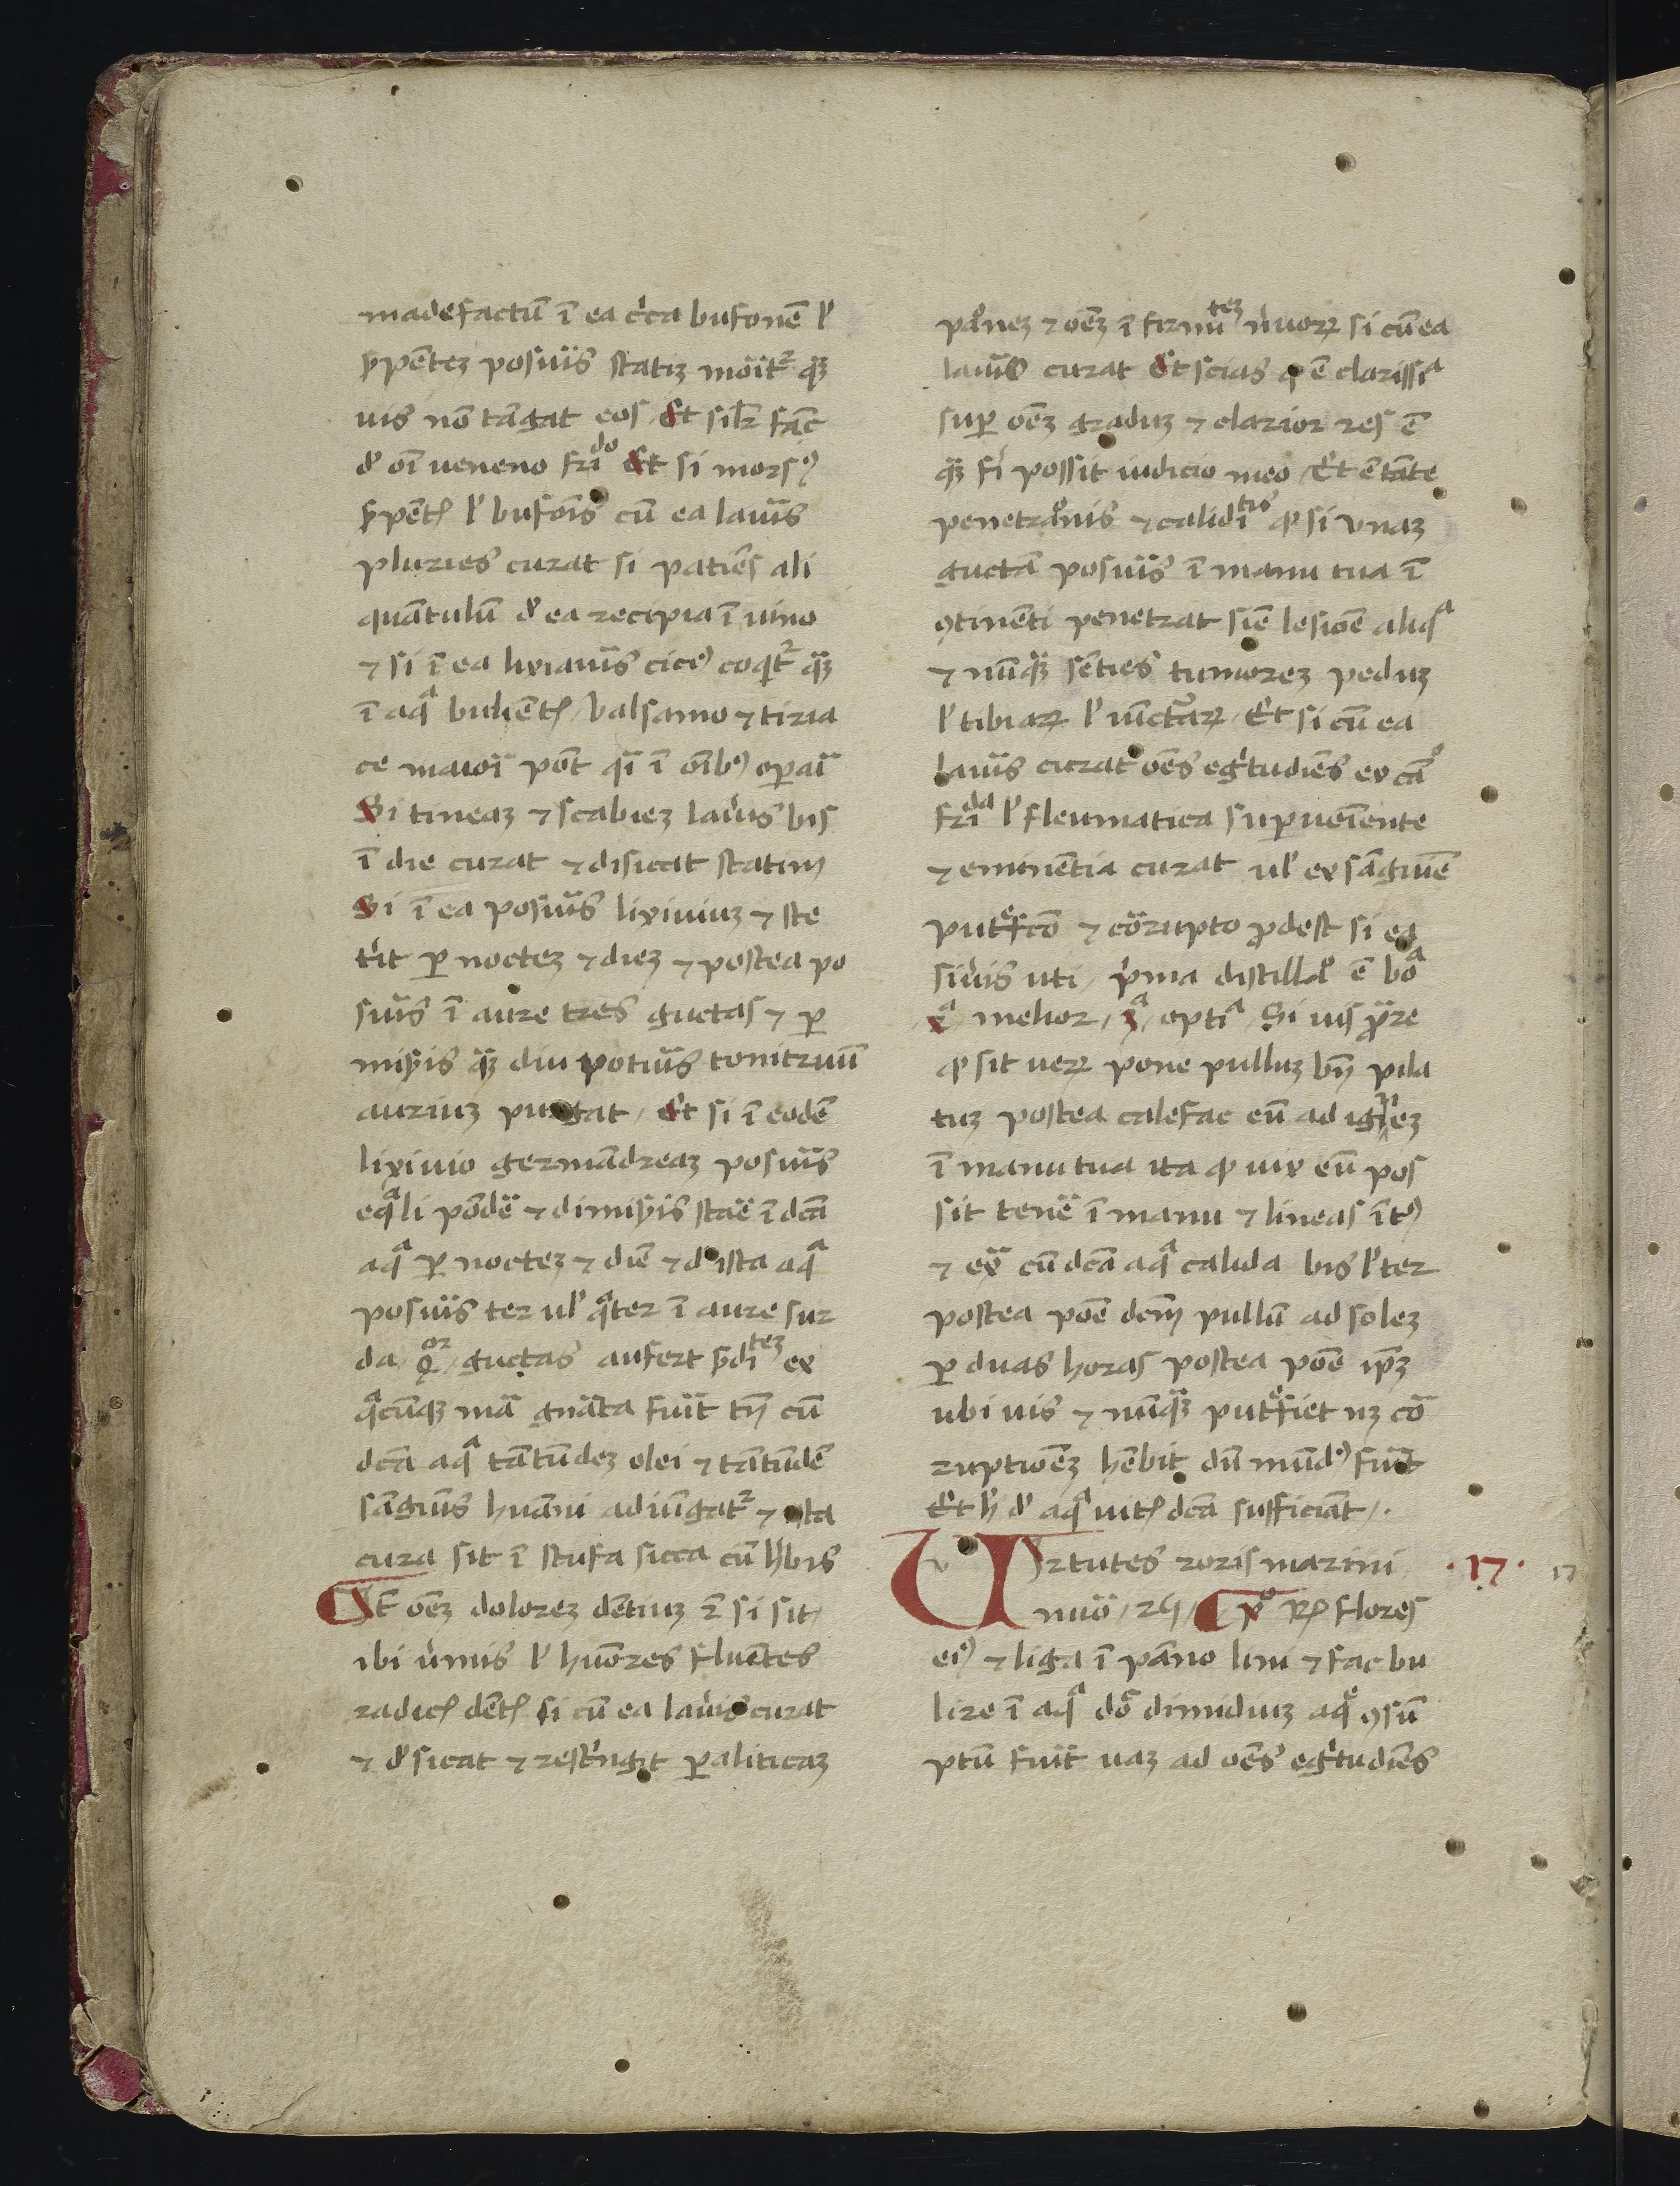 madefactū ī ea c̓ca bufonē l̓
ẜpētez posuis̄ statiz moīt᷑ qꝫ
uis nō tāgat eos / Et sil̓r fāc
d̓ oī ueneno fri͞do Et si mors⁹
ẜpētꝭ l̓ bufōis cū ea lauīs
pluries curat si patiēs ali
quātulū d̓ ea recipia ī uino
⁊ si ī ea lixiauīs cice⁹ coqt᷑ qꝫ
ī aqᵃ buliētꝭ / balsamo ⁊ tiria
ce maioī pōt qī ī oīb⁹ oꝑaī
Si tineaz ⁊ scabiez laūis bis
ī die curat ⁊ disiccat statim
Si ī ea posuīs lixiuiuz ⁊ ste
tit̓ ꝑ noctez ⁊ diez ⁊ postea po
suīs ī aure tres guctas ⁊ ꝑ
mis̓is qꝫ diu potuīs tonitruū
auriuz purgat / Et si ī eodē
lixiuio germādreaz posuīs
eqᵃli pōdē ⁊ dimis̓is staē ī dcā
aqᵃ ꝑ noctez ⁊ diē ⁊ d̓ ista aqᵃ
posuīs ter ul̓ qᵃter ī aure sur
da / qᵒʳ / guctas aufert s̓diᵗᵉᶻ ex
qᵃcūqꝫ mā gnāta fuīt tn̄ cū
dcā aqᵃ tātūdez olei ⁊ tātūdē
sāguīs huāni adiūgat᷑ ⁊ ista
cura sit ī stufa sicca cū h̓bis
It oēz dolorez dētiuz ⁊ si sit /
ibi ūmis l̓ huōres fluētes
radicꝭ dētꝭ si cū ea lauīs curat
⁊ d̓sicat ⁊ rest̓ngit ꝑaliticaz
pᵃonez ⁊ oēz īfirmiᵗᵉᶻ n̓uoꝝ si cū ea
lauīs curat Et scias ꝙ ē clarissiᵃ
suꝑ oēz graduz ⁊ clarior res ē
qꝫ fi̓ possit iudicio meo / Et ē tāte
penetraᵒnis ⁊ calidiᵗⁱˢ ꝙ si vnaz
guctā posuīs ī manu tua ī
ꝯtinēti penetrat siē lesioē aliqᵃ
⁊ nūqꝫ sēties tumorez peduz
l̓ tibiaꝝ l̓ iūctᵃrꝝ / Et si cū ea
lauīs curat oēs egt̓udiēs ex cā
friᵈᵃ l̓ fleumatica suꝑueīente
⁊ eminētia curat ul̓ ex sāguīē
putᵉfcō ⁊ cōrupto ꝓdest si ea
sūis uti / p̓ma distillaᵒ ē boᵃ
2ᵃ melior / 3ᵃ / optiᵃ / Si uis ꝓre
ꝙ sit ueꝝ pone pulluz bn̄ pila
tuz postea calefac eū ad ignez
ī manu tua ita ꝙ uix eū pos
sit tenē ī manu ⁊ lineas īt⁹
⁊ exᵃ cū dcā aqᵃ calida bis l̓ ter
postea poē dcm̄ pullū ad solez
ꝑ duas horas postea poē ip̄z
ubi uis ⁊ nūqꝫ putᵉfiet nꝫ cō
ruptioēz hēbit dū mūd⁹ fuīt
Et h̓ d̓ aqᵃ uitꝭ dcā sufficiāt / .
Virtutes roris marini · 17 · 17
¶ pᵒ Rꝭ flores
ei⁹ ⁊ liga ī pāno lini ⁊ fac bu
lire ī aqᵃ dō dimidiuz aqᵉ ꝯsū
ptū fuīt uaꝫ ad oēs egt̓udiēs